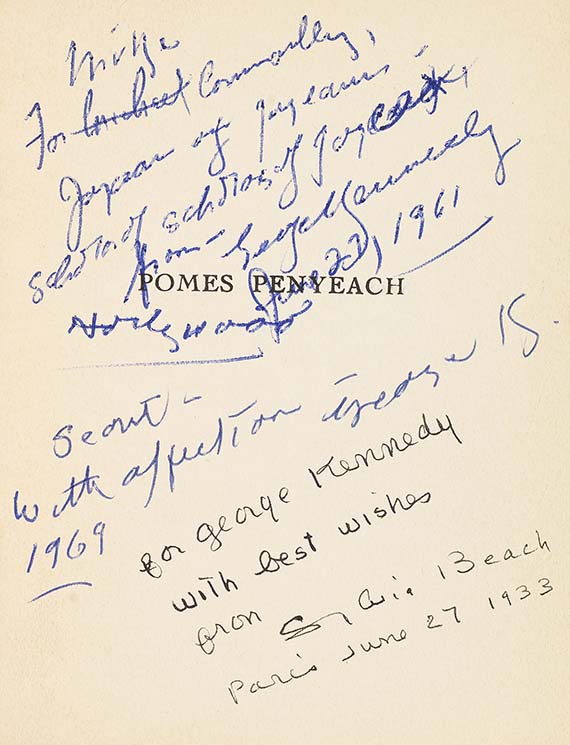 Mike
For Michael Connolly,
Joycean of Joyceans -
scholar of scholars of Joyce
from - George Kennedy
June 22, 1961
POMES PENYEACH
Hollywood
Scout -
With affection George K.
1969
for george Kennedy
with best wishes
from Sylvia Beach
Paris June 27 1933